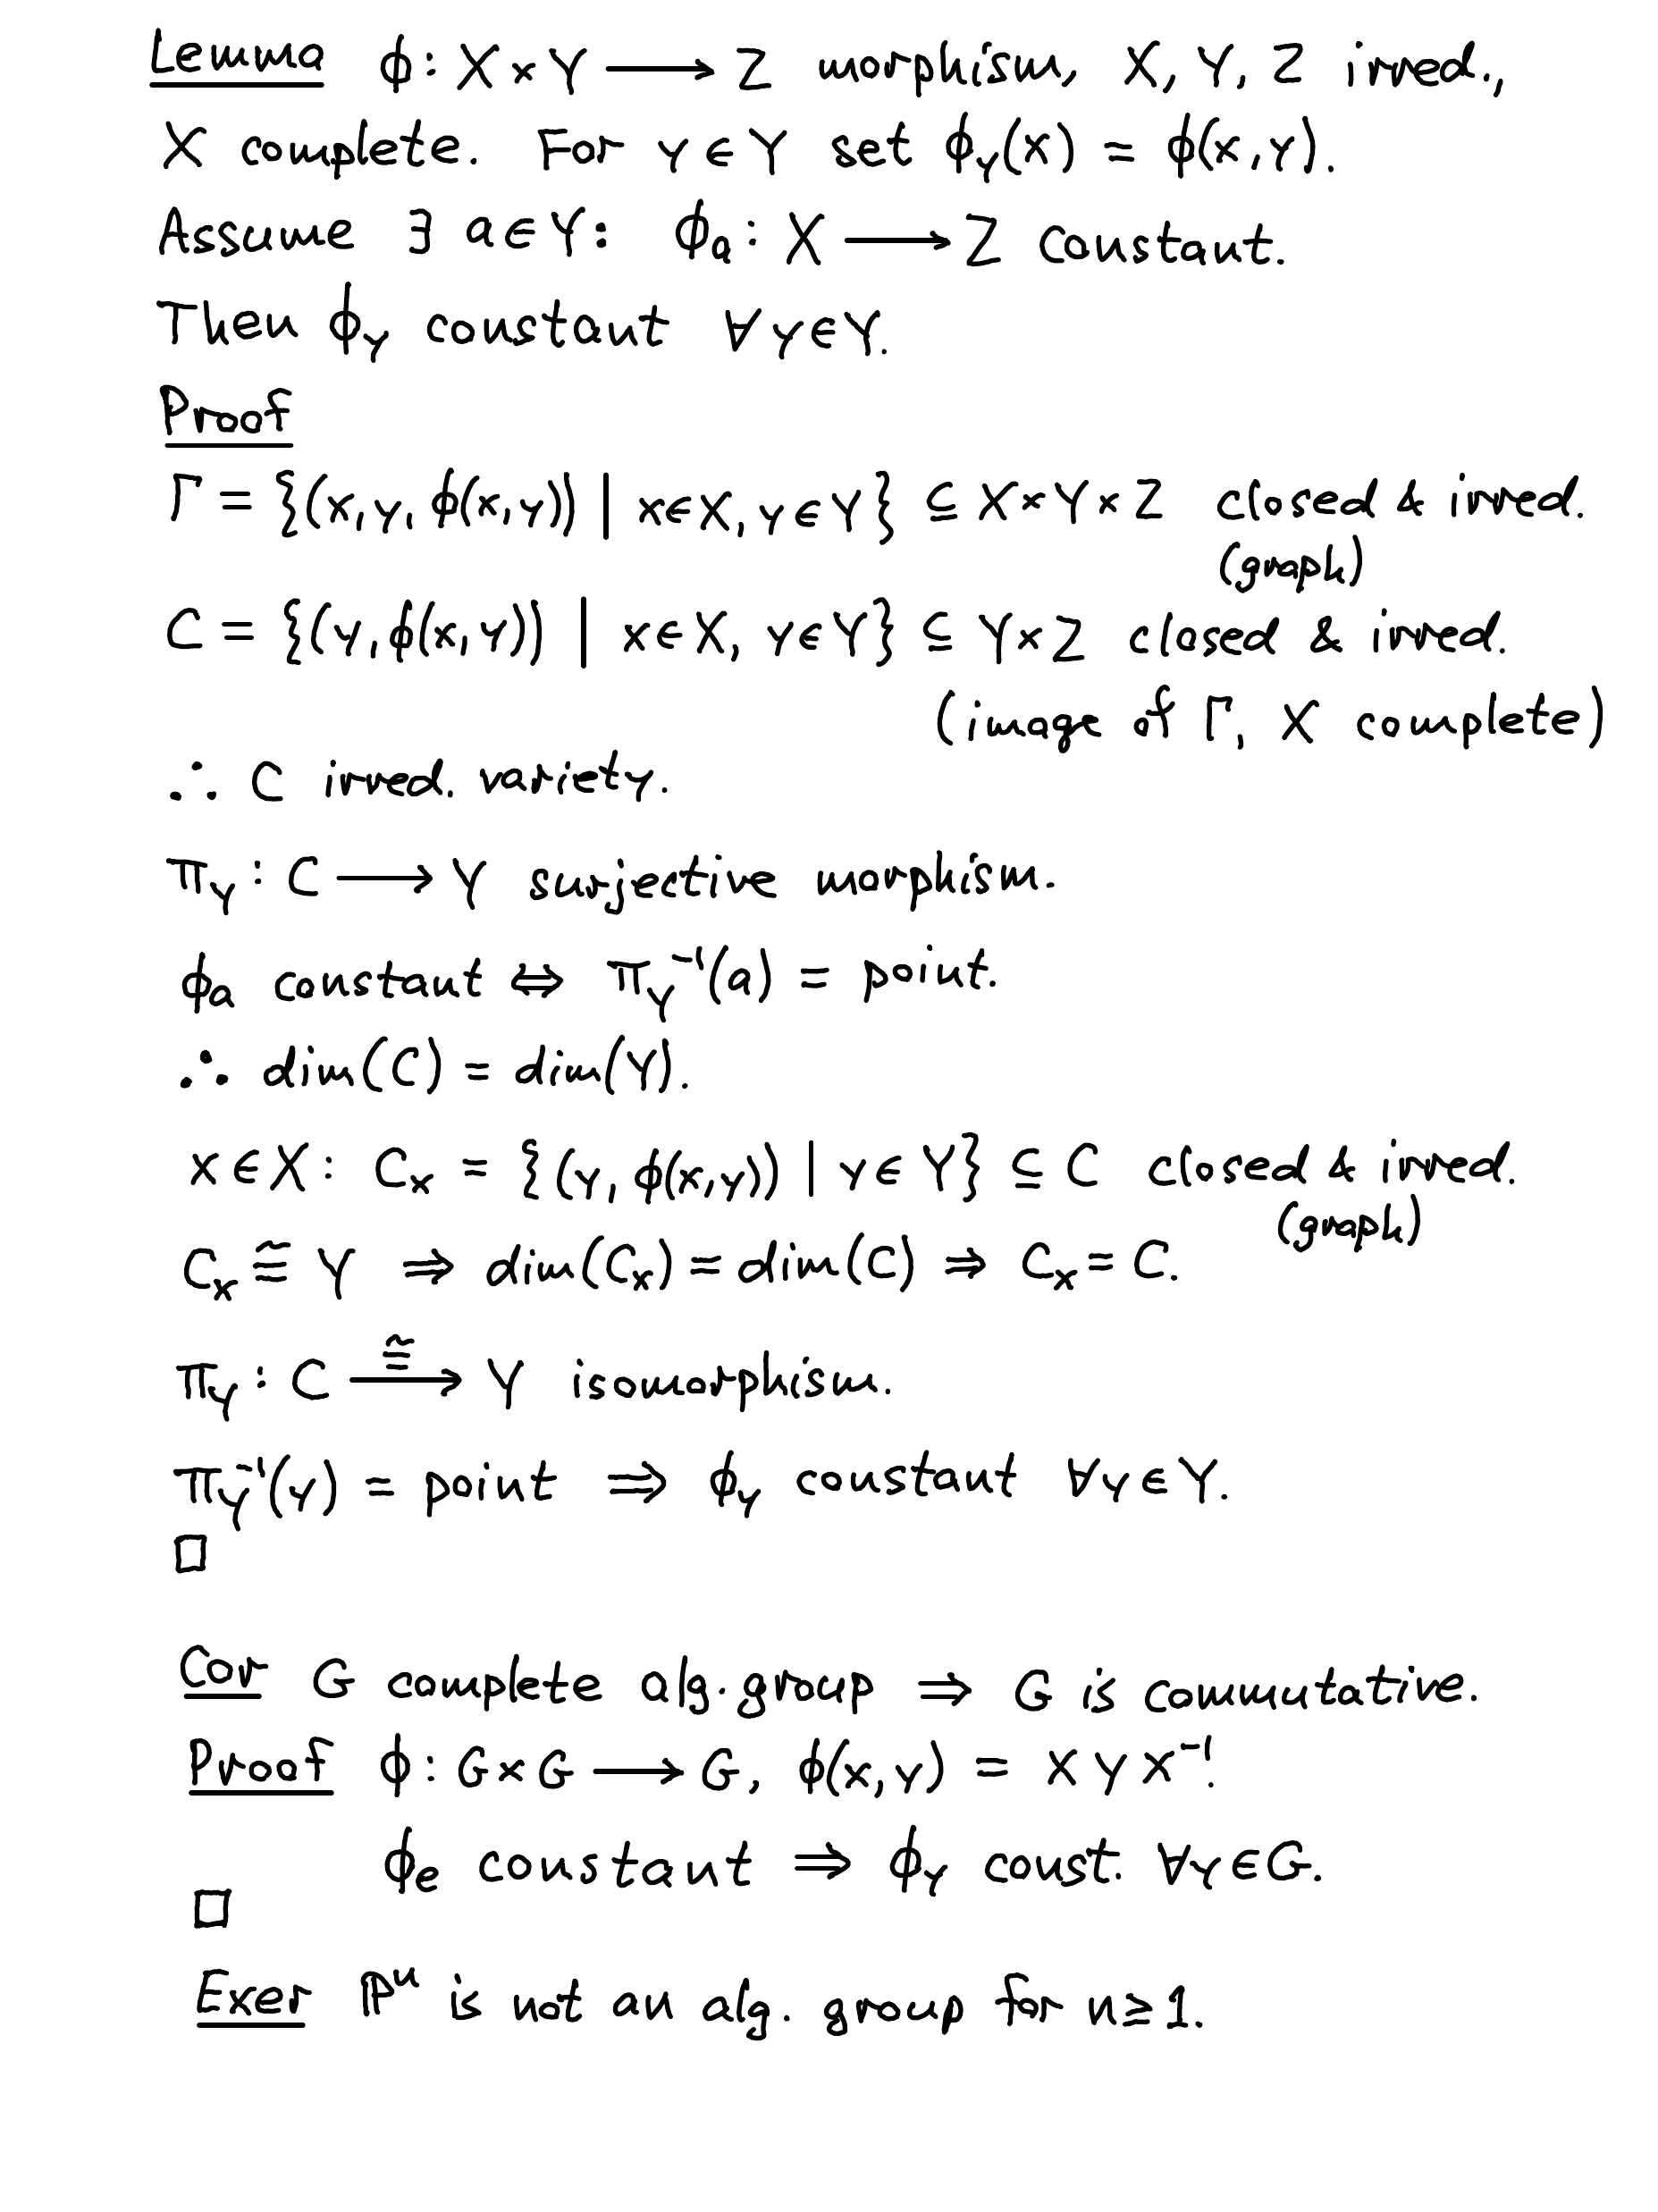 Lemma φ: X × Y ⟶ Z morphism, X, Y, Z irred.,
X complete. For y ∈ Y set φ_y(x) = φ(x,y).
Assume ∃ a ∈ Y: φ_a: X ⟶ Z constant.
Then φ_y constant ∀ y ∈ Y.
Proof
Γ = {(x, y, φ(x,y)) | x ∈ X, y ∈ Y} ⊆ X × Y × Z closed & irred.
(graph)
C = {(y, φ(x,y)) | x ∈ X, y ∈ Y} ⊆ Y × Z closed & irred.
(image of Γ, X complete)
∴ C irred. variety.
π_Y: C ⟶ Y surjective morphism.
φ_a constant ⇔ π_Y⁻¹(a) = point.
∴ dim(C) = dim(Y).
x ∈ X: C_x = {(y, φ(x,y)) | y ∈ Y} ⊆ C closed & irred.
(graph)
C_x ≅ Y ⇒ dim(C_x) = dim(C) ⇒ C_x = C.
π_Y: C ⟶≅ Y isomorphism.
π_Y⁻¹(y) = point ⇒ φ_y constant ∀ y ∈ Y.
□
Cor G complete alg. group ⇒ G is commutative.
Proof φ: G × G ⟶ G, φ(x,y) = x y x⁻¹.
φ_e constant ⇒ φ_y const. ∀ y ∈ G.
□
Exer ℙⁿ is not an alg. group for n ≥ 1.